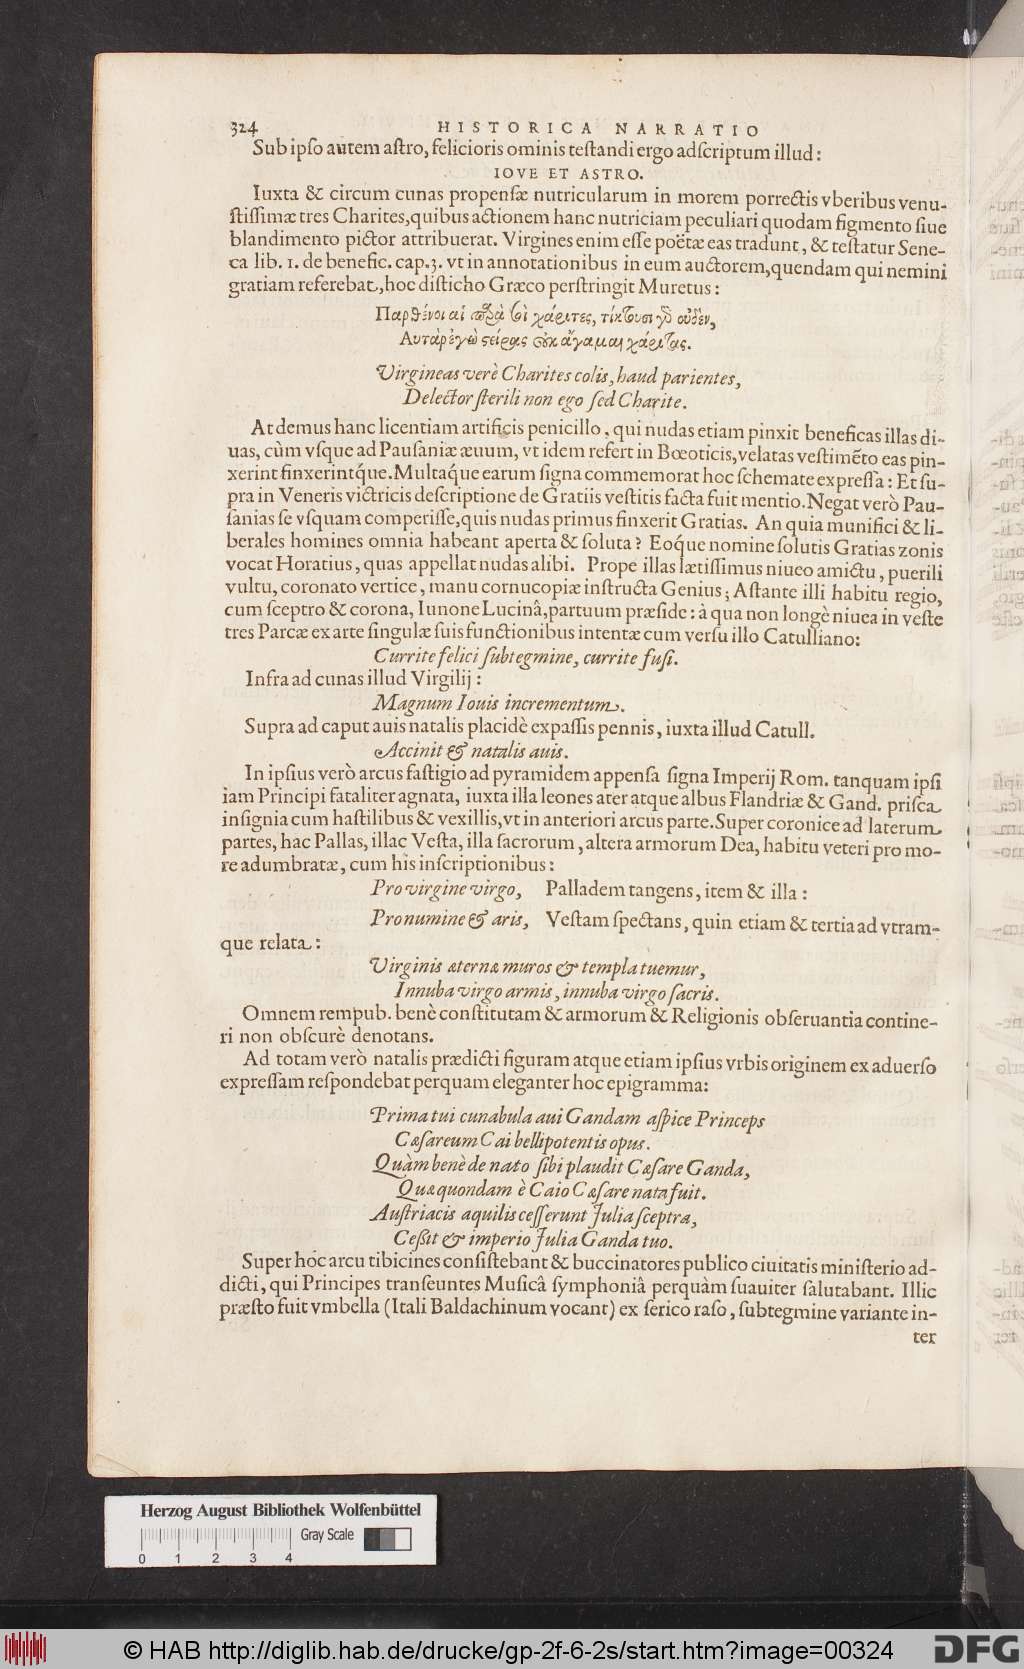 324 HISTORICA NARRATIO
Sub ipſo autem aſtro, felicioris ominis teſtandi ergo adſcriptum illud:
IOVE ET ASTRO.
Iuxta & circum cunas propenſæ nutricularum in morem porrectis vberibus venu-
ſtiſſimæ tres Charites, quibus actionem hanc nutriciam peculiari quodam figmento ſiue
blandimento pictor attribuerat. Virgines enim eſſe poëtæ eas tradunt, & teſtatur Sene-
ca lib. 1. de benefic. cap. 3. vt in annotationibus in eum auctorem, quendam qui nemini
gratiam referebat, hoc diſticho Græco perſtringit Muretus:
Παρθένοι αἱ παρὰ σοὶ χάριτες, τίκτουσι γὸ οὐδὲν,
Αυτὰρ ἐγὼ στείρας οὐκ ἄγαμαι χάριτας.
Virgineas verè Charites colis, haud parientes,
Delector ſterili non ego ſed Charite.
At demus hanc licentiam artificis penicillo, qui nudas etiam pinxit beneficas illas di-
uas, cùm vſque ad Pauſaniæ æuum, vt idem refert in Bœoticis, velatas veſtimẽto eas pin-
xerint finxerintq́ue. Multaq́ue earum ſigna commemorat hoc ſchemate expreſſa: Et ſu-
pra in Veneris victricis deſcriptione de Gratiis veſtitis facta fuit mentio. Negat verò Pau-
ſanias ſe vſquam comperiſſe, quis nudas primus finxerit Gratias. An quia munifici & li-
berales homines omnia habeant aperta & ſoluta? Eoq́ue nomine ſolutis Gratias zonis
vocat Horatius, quas appellat nudas alibi. Prope illas lætiſſimus niueo amictu, puerili
vultu, coronato vertice, manu cornucopiæ inſtructa Genius; Aſtante illi habitu regio,
cum ſceptro & corona, Iunone Lucinâ, partuum præſide: à qua non longè niuea in veſte
tres Parcæ ex arte ſingulæ ſuis functionibus intentæ cum verſu illo Catulliano:
Currite felici ſubtegmine, currite fuſi.
Infra ad cunas illud Virgilij:
Magnum Iouis incrementum.
Supra ad caput auis natalis placidè expaſſis pennis, iuxta illud Catull.
Accinit & natalis auis.
In ipſius verò arcus faſtigio ad pyramidem appenſa ſigna Imperij Rom. tanquam ipſi
iam Principi fataliter agnata, iuxta illa leones ater atque albus Flandriæ & Gand. priſca
inſignia cum haſtilibus & vexillis, vt in anteriori arcus parte. Super coronice ad laterum
partes, hac Pallas, illac Veſta, illa ſacrorum, altera armorum Dea, habitu veteri pro mo-
re adumbratæ, cum his inſcriptionibus:
Pro virgine virgo, Palladem tangens, item & illa:
Pro numine & aris, Veſtam ſpectans, quin etiam & tertia ad vtram-
que relata:
Virginis æternæ muros & templa tuemur,
Innuba virgo armis, innuba virgo ſacris.
Omnem rempub. benè conſtitutam & armorum & Religionis obſeruantia contine-
ri non obſcurè denotans.
Ad totam verò natalis prædicti figuram atque etiam ipſius vrbis originem ex aduerſo
expreſſam reſpondebat perquam eleganter hoc epigramma:
Prima tui cunabula aui Gandam aſpice Princeps
Cæſareum Cai bellipotentis opus.
Quàm benè de nato ſibi plaudit Cæſare Ganda,
Quæ quondam è Caio Cæſare nata fuit.
Auſtriacis aquilis ceſſerunt Julia ſceptra,
Ceßit & imperio Julia Ganda tuo.
Super hoc arcu tibicines conſiſtebant & buccinatores publico ciuitatis miniſterio ad-
dicti, qui Principes tranſeuntes Muſicâ ſymphoniâ perquàm ſuauiter ſalutabant. Illic
præſto fuit vmbella (Itali Baldachinum vocant) ex ſerico raſo, ſubtegmine variante in-
ter
Herzog August Bibliothek Wolfenbüttel
Gray Scale
0 1 2 3 4
© HAB http://diglib.hab.de/drucke/gp-2f-6-2s/start.htm?image=00324
DFG